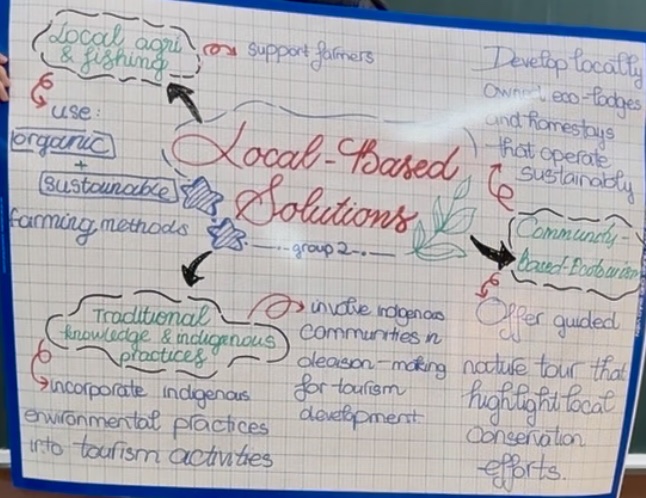 Local-Based
Solutions
group 2
Local agri
& fishing
support farmers
use:
organic
+
sustainable
farming methods
Traditional
knowledge & indigenous
practices
incorporate indigenous
environmental practices
into tourism activities
involve indigenous
communities in
decision-making
for tourism
development
Community-
Based-Ecotourism
Develop locally
owned eco-lodges
and homestays
that operate
sustainably
Offer guided
nature tour that
highlight local
conservation
efforts.